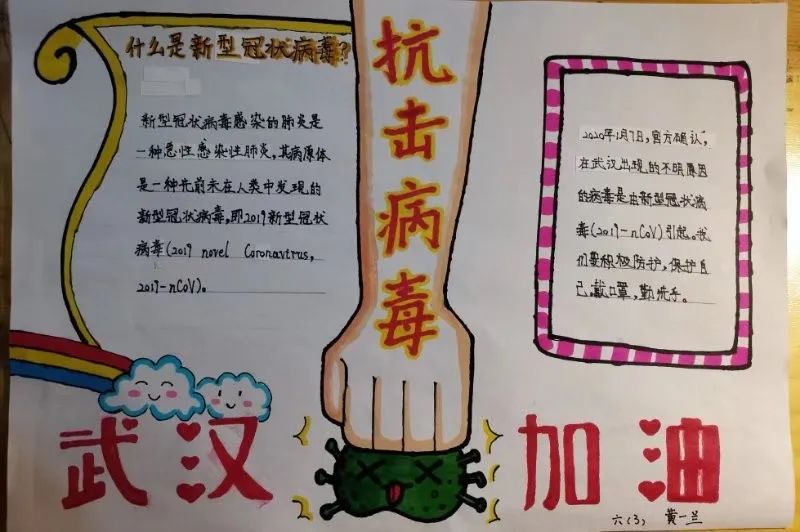 什么是新型冠状病毒?
新型冠状病毒感染的肺炎是
一种急性感染性肺炎,其病原体
是一种先前未在人类中发现的
新型冠状病毒,即2019新型冠状
病毒(2019 novel Coronavirus,
2019-nCoV)。
抗击病毒
2020年1月7日,官方确认,
在武汉出现的不明原因
的病毒是由新型冠状病
毒(2019-nCoV)引起。我
们要积极防护,保护自
己.戴口罩,勤洗手。
武汉
加油
六(3) 黄一兰